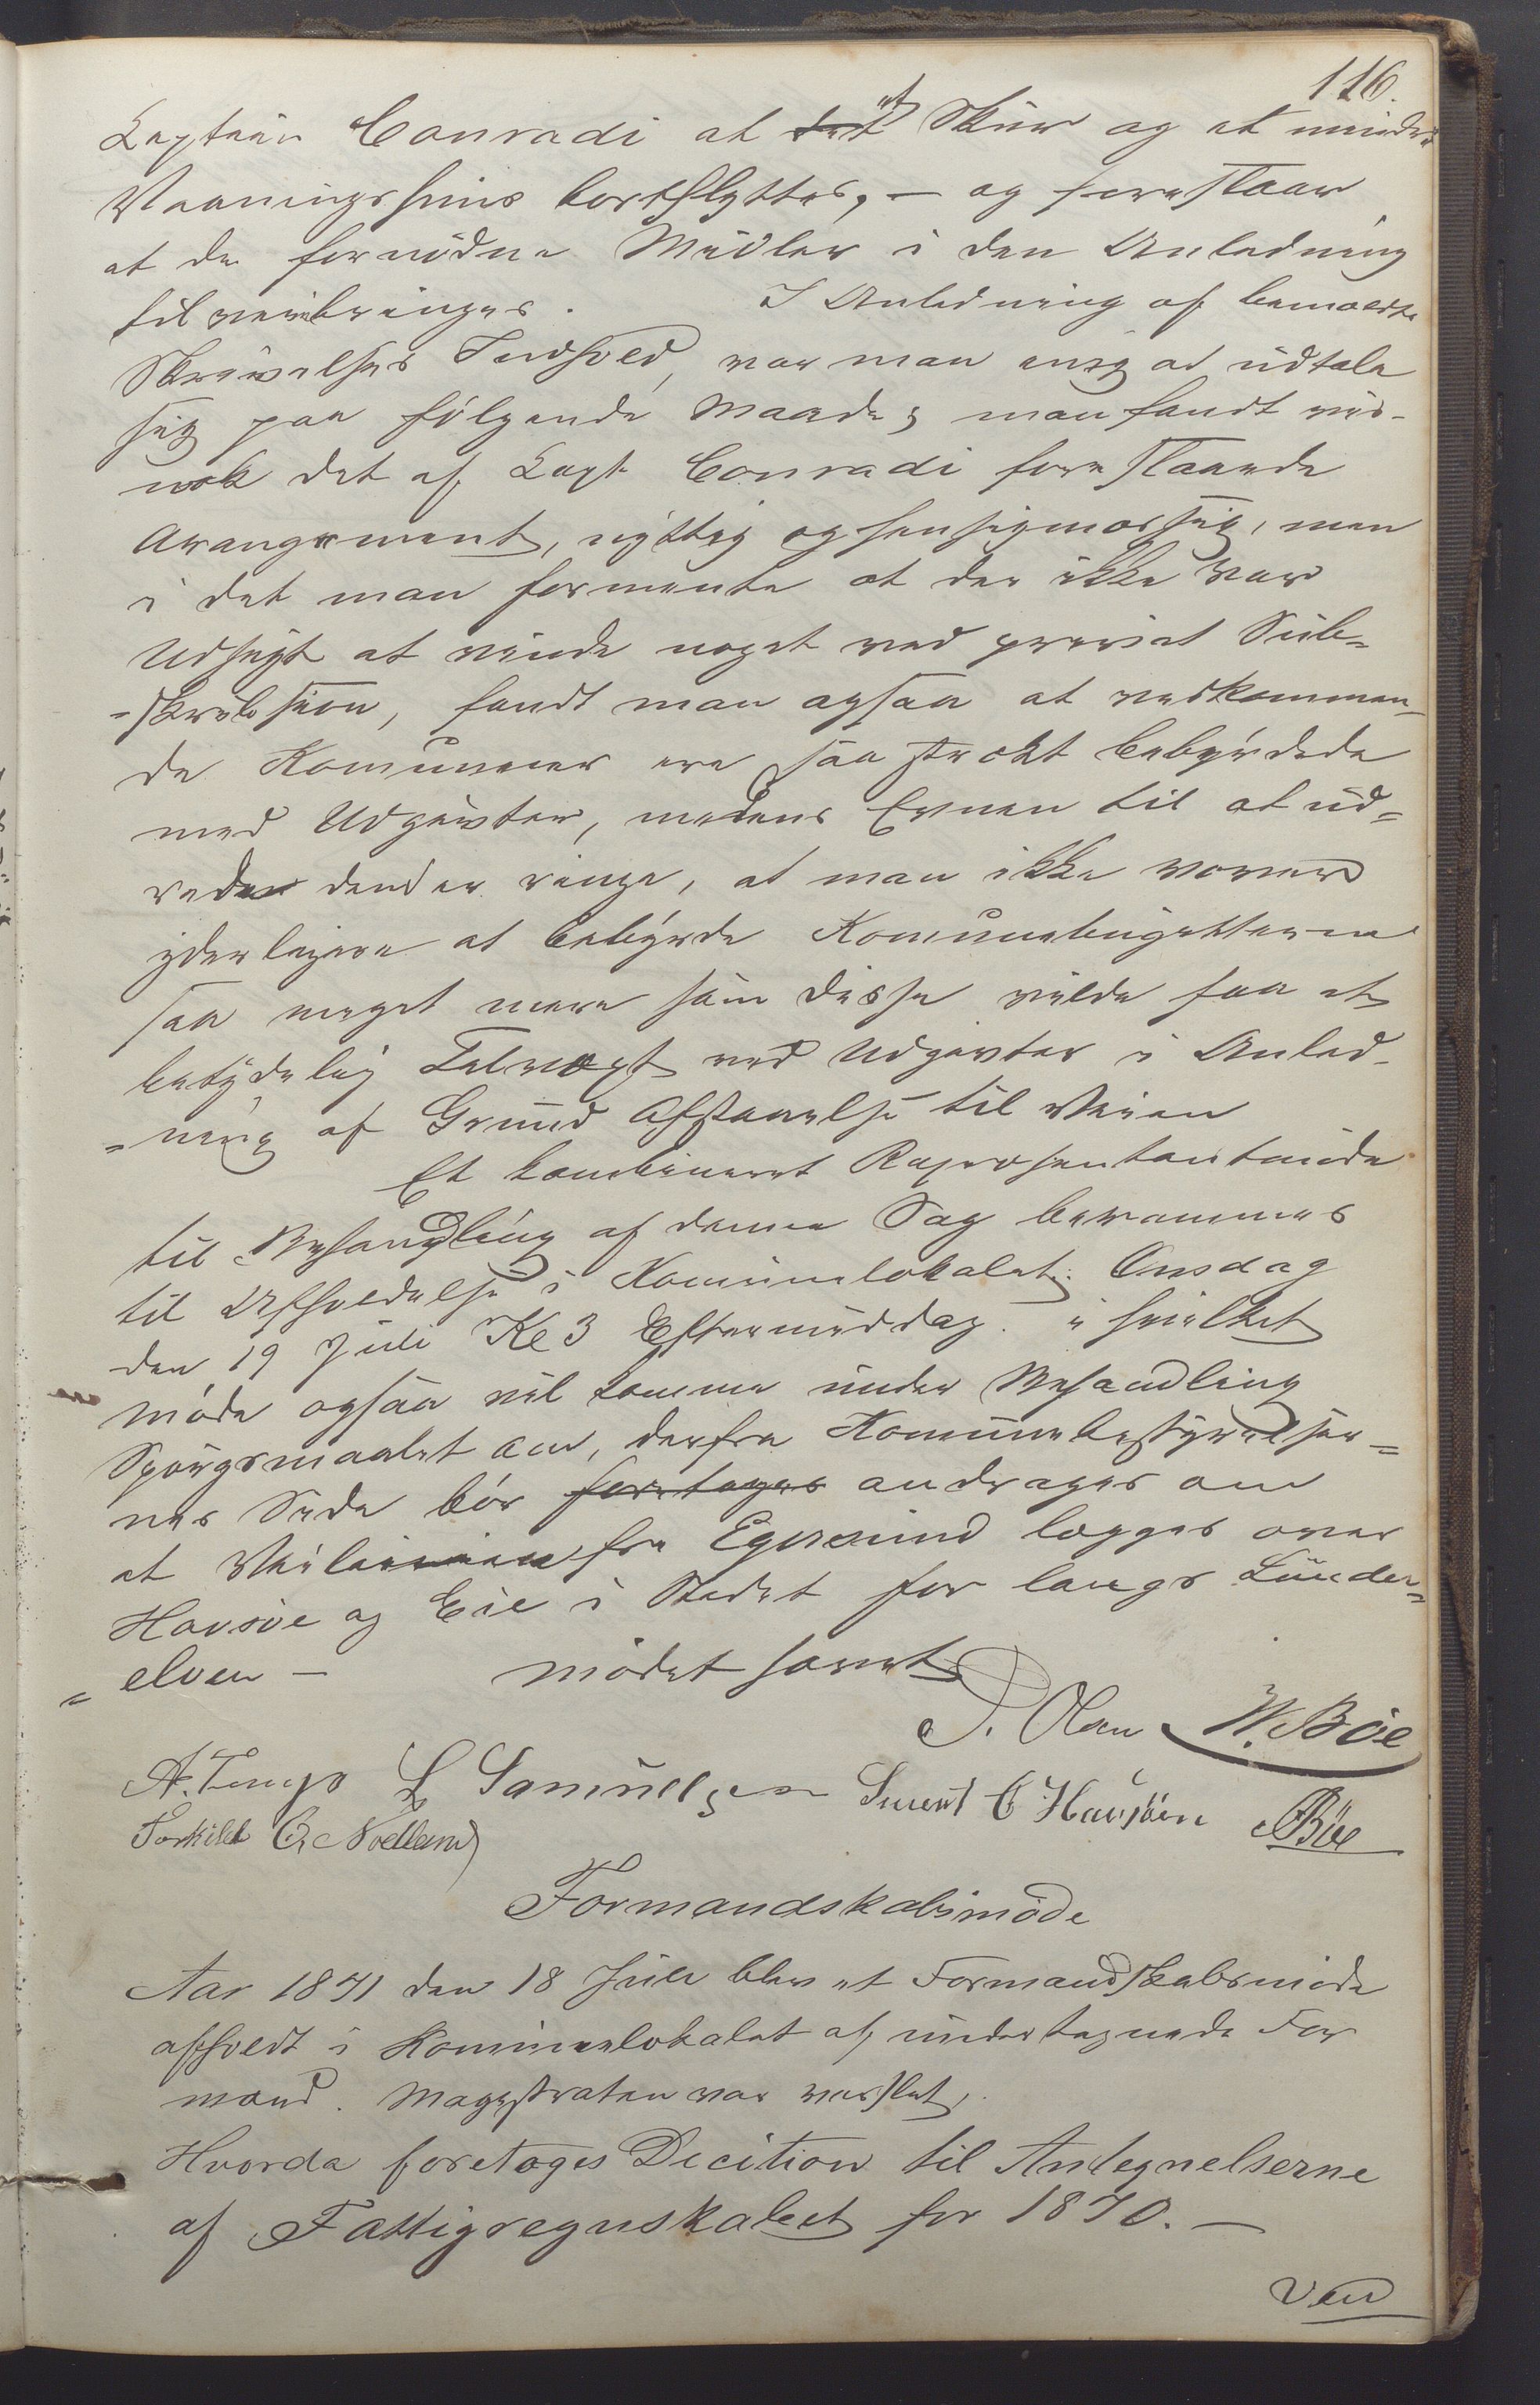 116.
Captain Conradi at et Skuur og et mindre
Vaaningshuus bortflyttes, — og foreslaar
at de fornödne Midler i den Anledning
tilveiebringes. I Anledning af bemældte
Skrivelses Indhold, var man enig at udtale
sig paa følgende Maade, man fandt vis-
nok det af Capt Conradi foreslaaede
Arangement, nyttig og hensigmæssig, men
i det man formente at der ikke var
Udsigt at vinde noget ved privat Sub-
-skribsion, fandt man ogsaa at vedkommen-
de Komunner ere saa stærkt bebyrdede
med Udgivter, medens Evnen til at ud-
rede dend er ringe, at man ikke vover
yderligere at bebyrde Komunebugetterne
saa meget mere som disse vilde faa et
betydelig Tilvext ved Udgivter i Anled-
-ning af Grund Afstaaelse til Veien
Et kombineret Repræsentantmöde
til Behandling af denne Sag berammes
til Afholdelse i Komunelokalet. Onsdag
den 19 Juli Kl 3 Eftermiddag. i hvilket
Möde ogsaa vil komme under Behandling
Spörgsmaalet om, derfra Komunebestyrelser-
nes Side bör foretages andrages om
at Veilinien fra Egersund lægges over
Havsöe og Eie i Stedet for langs Lunde-
-elven — mödet hævet
P. Olsen W. Böe
A. Tengs L Samuelsen Sivert O Havsöen Böe
Torkild O. Nodland
Formandskabsmöde
Aar 1871 den 18 Juli blev et Formandskabsmöde
afholdt i Komunelokalet af undertegnede For
mænd. Magistraten var varslet.
Hvorda foretoges Decition til Antegnelserne
af Fattigregnskabet for 1870. —
Ven